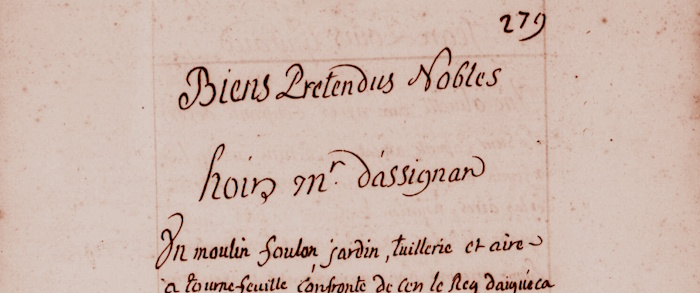 279
Biens Pretendus Nobles
hoirs mr. dassignan
Un moulin foulon, jardin, tuillerie et aire
a tourne feuille confronte de cen le Req daigueca